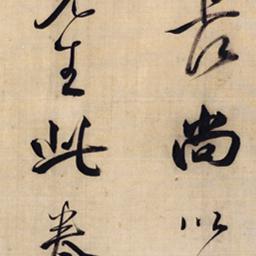 尚以
先生此卷